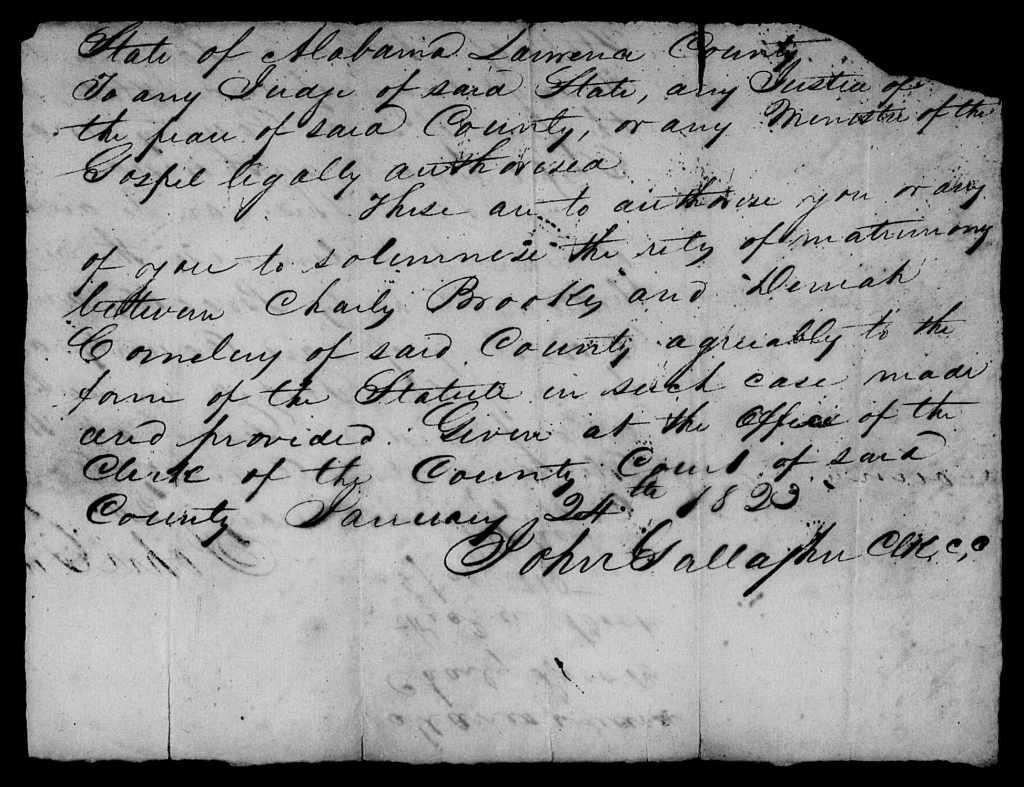 State of Alabama Lawrence County
To any Judge of said State, any Justice of
the peace of said County, or any Minister of the
Gospel legally authorised
These are to authorise you or any
of you to solemnise the rites of matrimony
between Charles Brooks and
of said County agreeably to the
form of the Statute in such case made
and provided. Given at the Office of the
Clerk of the County Court of said
County January 24th 1823
John Gallagher Clk, C, C